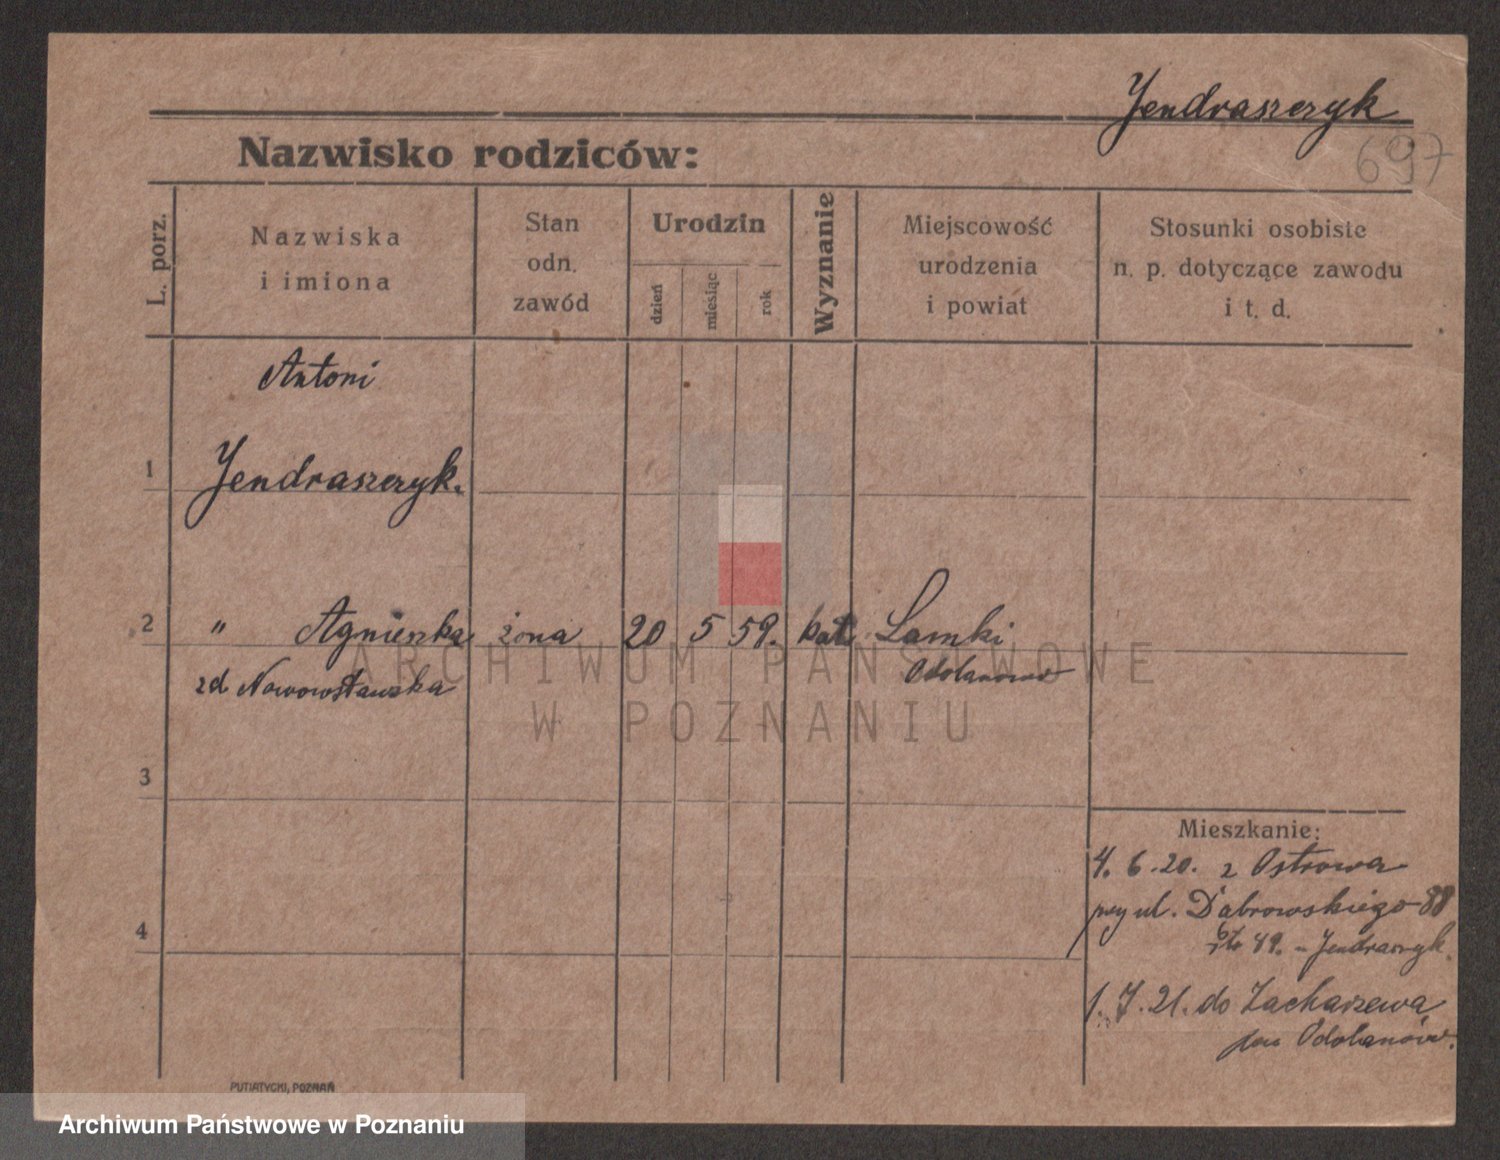 Jendraszczyk
697
Nazwisko rodziców:
L. porz.
Nazwiska
i imiona
Stan
odn.
zawód
Urodzin
dzień
miesiąc
rok
Wyznanie
Miejscowość
urodzenia
i powiat
Stosunki osobiste
n. p. dotyczące zawodu
i t. d.
Antoni
1 Jendraszczyk.
2 " Agnieszka żona 20 5 59. kat Lamki
zd Nowowstawska Odolanowo
ARCHIWUM PAŃSTWOWE
W POZNANIU
3
4
Mieszkanie:
4. 6. 20. z Ostrowa
przy ul. Dąbrowskiego 88
49. - Jendraszyk.
1. 7. 21. do Zacharzewa
pow Odolanów.
PUTIATYCKI, POZNAŃ
Archiwum Państwowe w Poznaniu